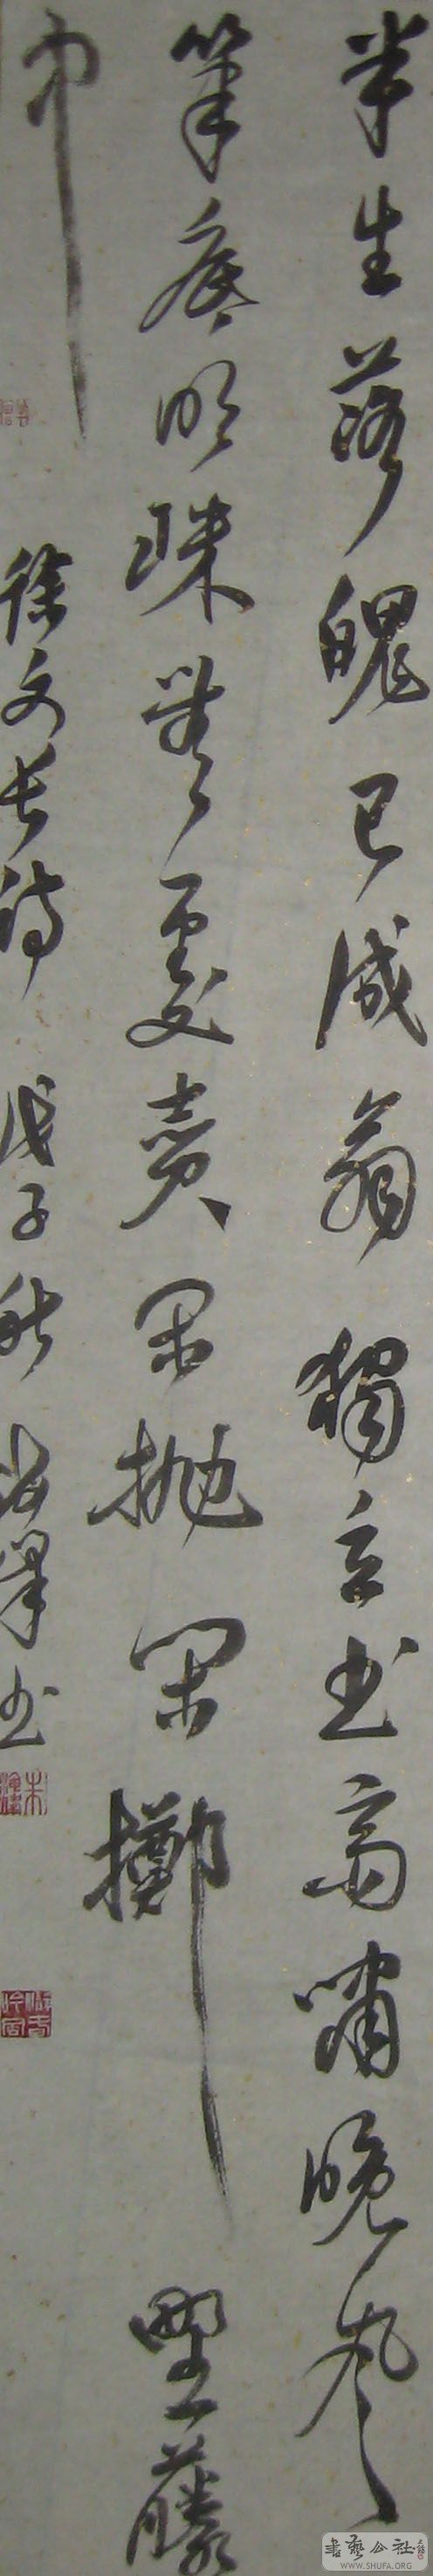 半生落魄已成翁獨立书斋嘯晚风
筆底明珠無處賣闲抛闲擲野藤
中
徐文长诗 戊子秋 海峰书
書藝公社
WWW.SHUFA.ORG